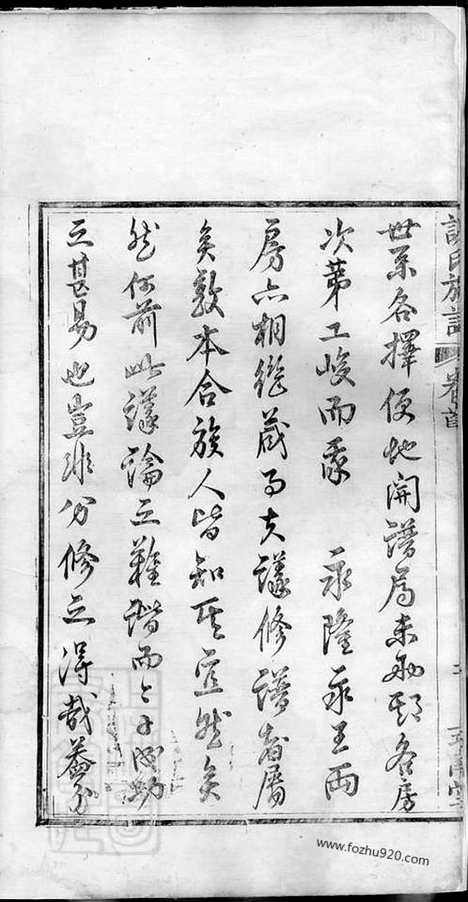 世系各擇便地開譜局未兩期各房
次第工峻而永 永隆永王兩
房亦相繼蕆事夫議修譜者屢
矣敦本合族人皆知其宜然矣
然何前此議論之難諧而今之成功
之甚易也豈非分修之得哉蓋分
氏族譜 卷首
www.fozhu920.com